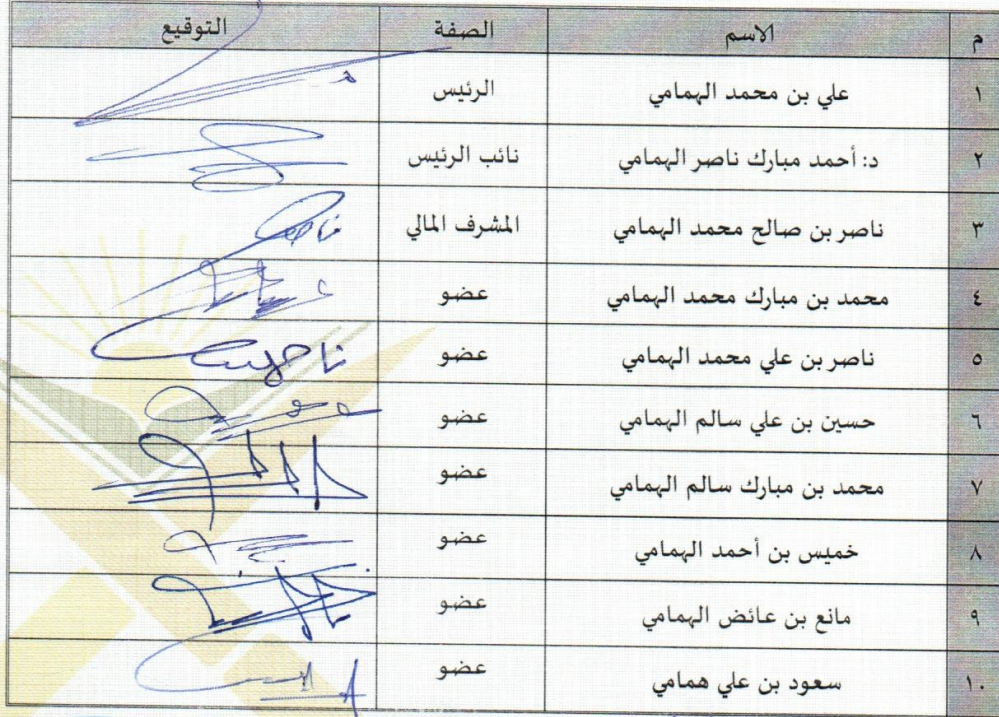 م الاسم الصفة التوقيع
١ علي بن محمد الهمامي الرئيس
٢ د: أحمد مبارك ناصر الهمامي نائب الرئيس
٣ ناصر بن صالح محمد الهمامي المشرف المالي
٤ محمد بن مبارك محمد الهمامي عضو
٥ ناصر بن علي محمد الهمامي عضو
٦ حسين بن علي سالم الهمامي عضو
٧ محمد بن مبارك سالم الهمامي عضو
٨ خميس بن أحمد الهمامي عضو
٩ مانع بن عائض الهمامي عضو
١٠ سعود بن علي همامي عضو